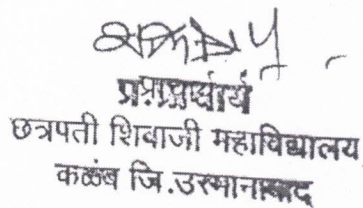 प्र.प्राचार्य
छत्रपती शिवाजी महाविद्यालय
कळंब जि.उस्मानाबाद